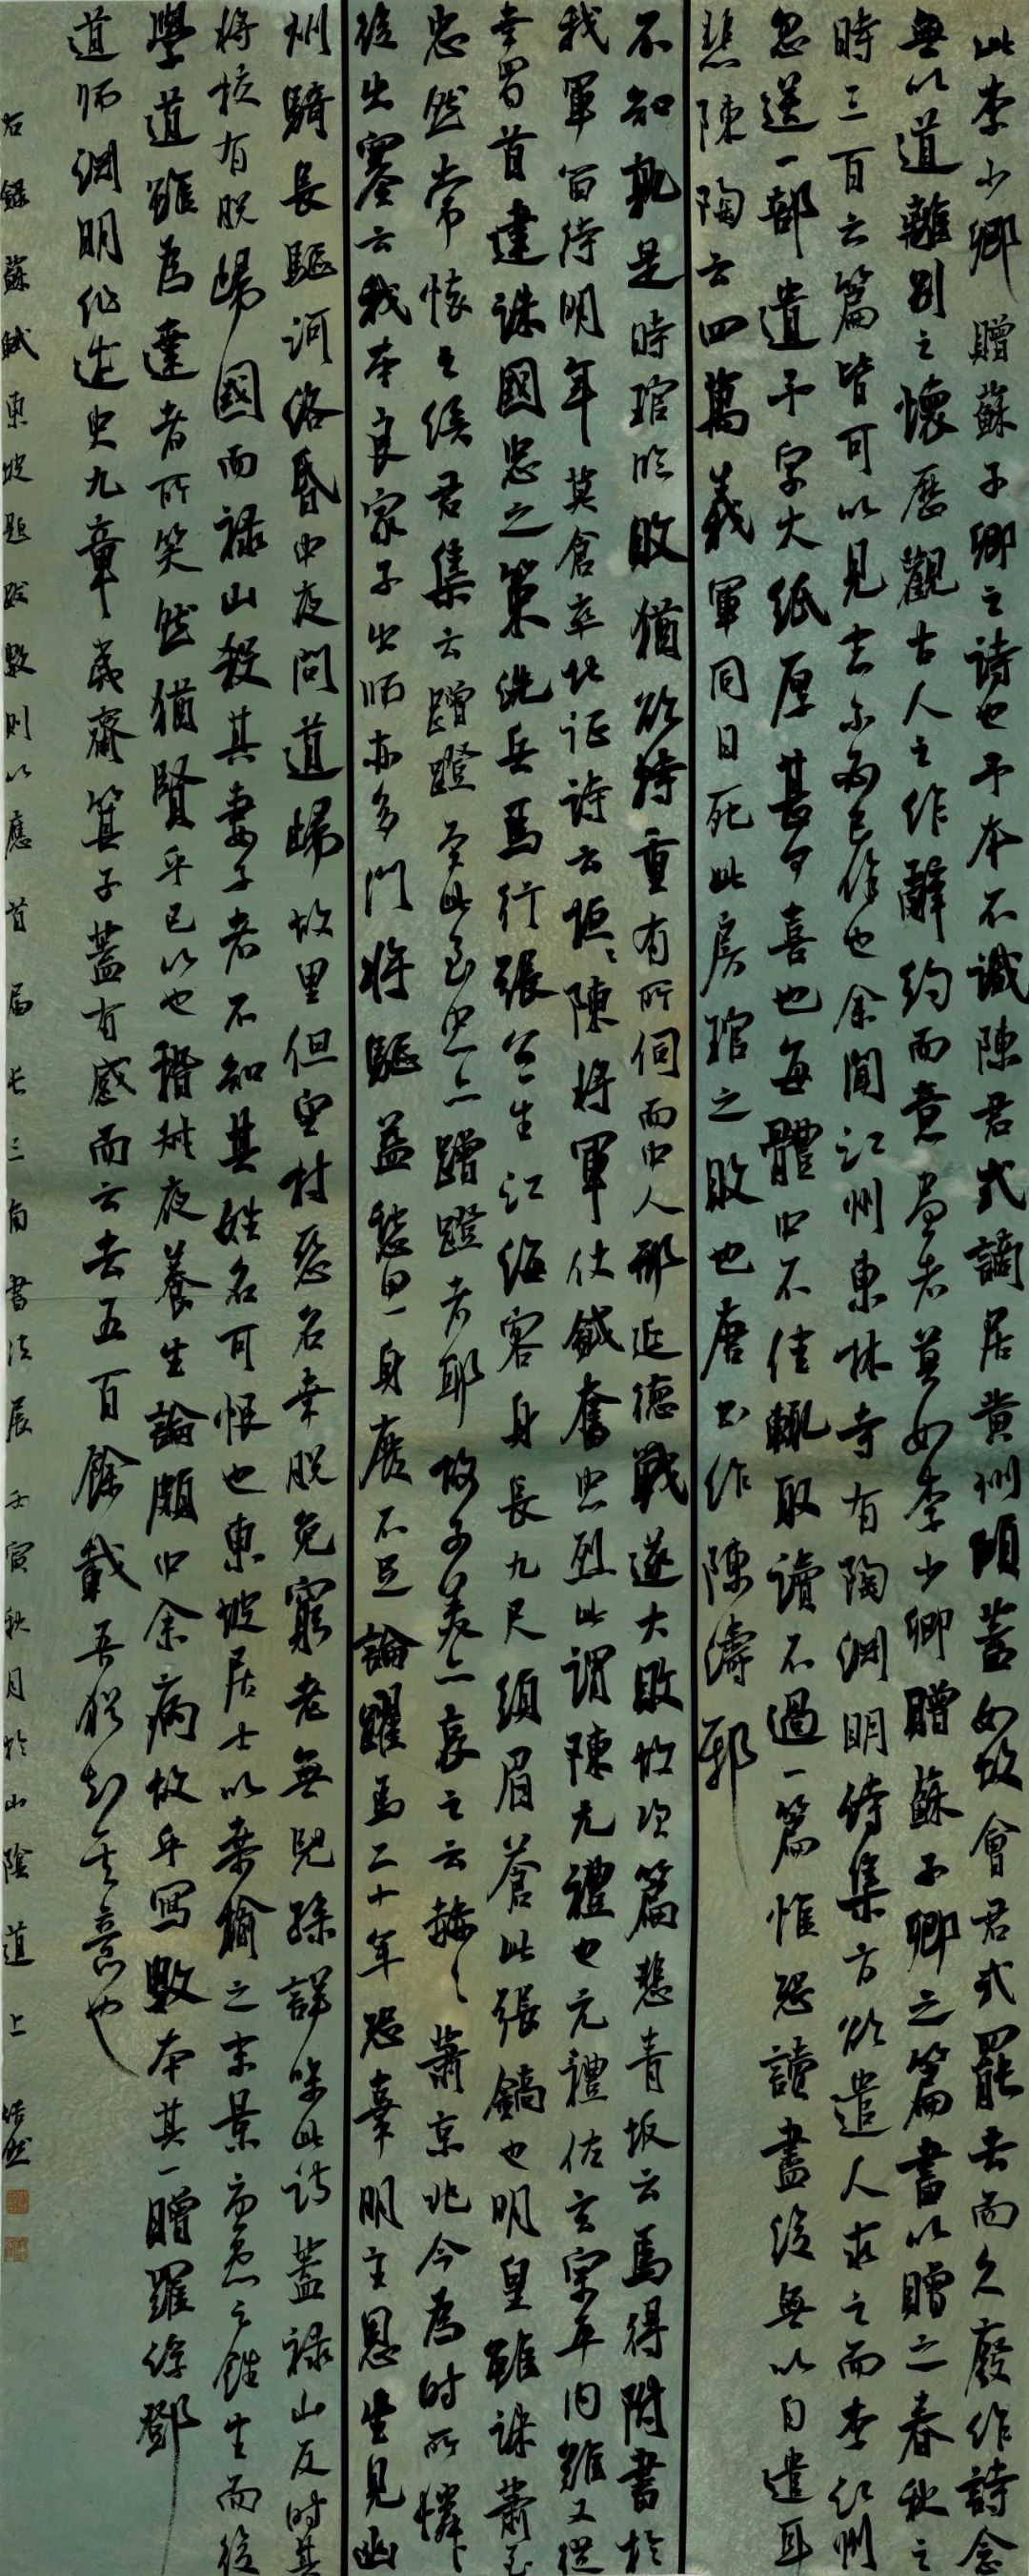 此李少卿贈蘇子卿之詩也予本不識陳君式謫居黃州傾蓋如故會君式罷去而久廢作詩念
無以道離別之懷歷觀古人之作辭約而意盡者莫如李少卿贈蘇子卿之篇書以贈之春秋之
時三百六篇皆可以見志不必己作也余聞江州東林寺有陶淵明詩集方欲遣人求之而李江州
忽送一部遺予字大紙厚甚可喜也每體中不佳輒取讀不過一篇惟恐讀盡後無以自遣耳
悲陳陶云四萬義軍同日死此房琯之敗也唐書作陳濤邪
不知孰是時琯臨敗猶欲持重有所伺而中人邢延德戰遂大敗故次篇悲青坂云焉得附書於
我軍留待明年莫倉卒北征詩云桓桓陳將軍仗鉞奮忠烈此謂陳元禮也元禮佐玄宗平內難又從
幸蜀首建誅國忠之策洗兵馬行張公一生江海客身長九尺鬚眉蒼此張鎬也明皇雖誅蕭至
忠然常懷之侯君集云蹭蹬至此至忠亦蹭蹬者耶故子美亦哀之云赫赫蕭京兆今為時所憐
後出塞云我本良家子出師亦多門將驕益愁思身廢不足論躍馬二十年恐辜明主恩坐見幽
州騎長驅河洛昏中夜間道歸故里但空村惡名幸脫免窮老無兒孫詳味此詩蓋祿山反時其
將校有脫歸國而祿山殺其妻子者不知其姓名可恨也東坡居士以桑榆之末景憂患之餘生而後
學道雖為達者所笑然猶賢乎已以也嵇叔夜養生論頗中余病故手寫數本其一贈羅浮鄧
道師淵明作述史九章夷齊箕子蓋有感而云去五百餘載吾猶知其意也
右錄蘇軾東坡題跋數則以應首屆長三角書法展壬寅秋月於山陰道上